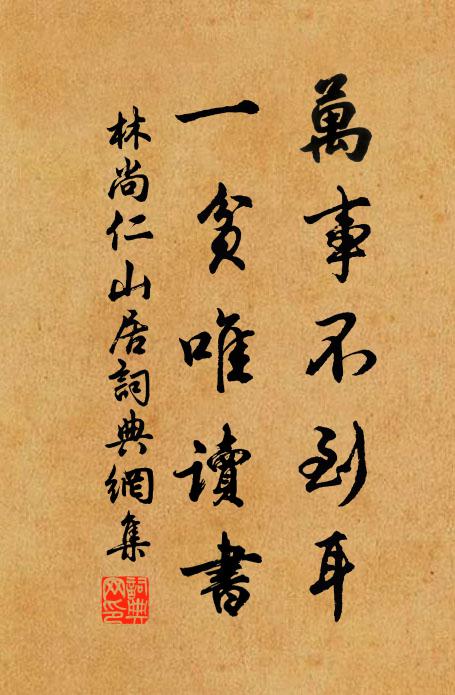 萬事不到耳
一貧唯讀書
林尚仁山居詞典網集
詞典网印